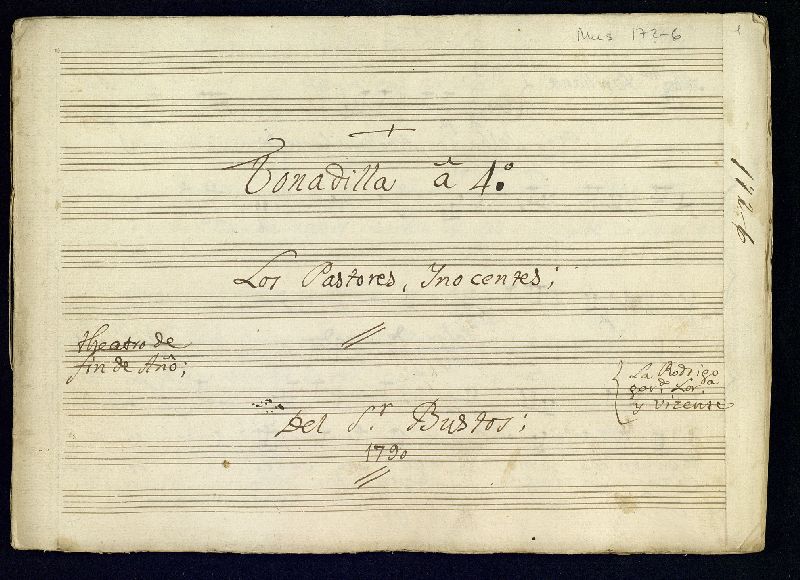 Mus 172-6
1
Tonadilla â 4.º
172-6
Los Pastores, Ynocentes;
theatro de
fin de Año;
La Rodrigo
y Vizente
Del S.r Bustos;
1790